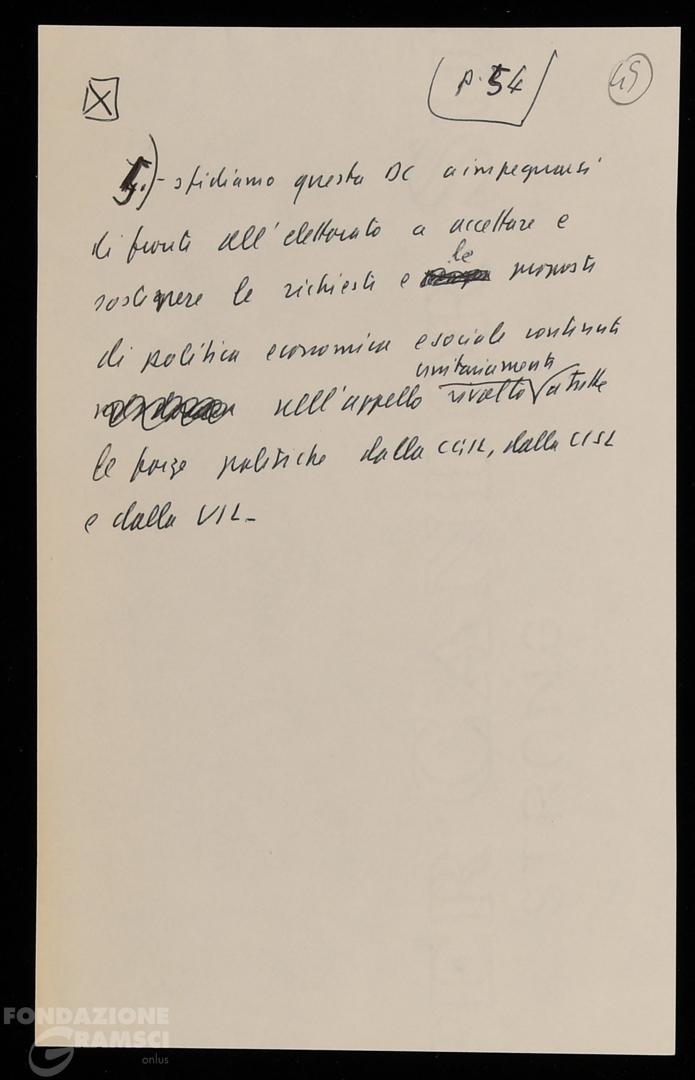 p. 54
49
5.) - sfidiamo questa DC a impegnarsi
di fronte all'elettorato a accettare e
sostenere le richieste e le proposte
di politica economica e sociale contenute
nell'appello rivolto unitariamente a tutte
le forze politiche dalla CGIL, dalla CISL
e dalla UIL -
FONDAZIONE
GRAMSCI
onlus